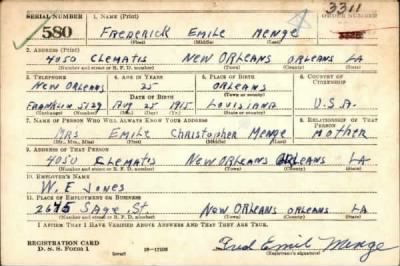 SERIAL NUMBER 1. NAME (Print) ORDER NUMBER
580 FREDERICK EMILE MENGE 3311
(First) (Middle) (Last)
2. ADDRESS (Print)
4050 CLEMATIS NEW ORLEANS ORLEANS LA
(Number and street or R. F. D. number) (Town) (County) (State)
3. TELEPHONE 4. AGE IN YEARS 5. PLACE OF BIRTH 6. COUNTRY OF CITIZENSHIP
NEW ORLEANS 25 ORLEANS
DATE OF BIRTH
FRANKLIN 5129 AUG 25 1915 LOUISIANA U.S.A.
(Exchange) (Number) (Mo.) (Day) (Yr.) (State or country)
7. NAME OF PERSON WHO WILL ALWAYS KNOW YOUR ADDRESS 8. RELATIONSHIP OF THAT PERSON
MRS EMILE CHRISTOPHER MENGE MOTHER
(Mr., Mrs., Miss) (First) (Middle) (Last)
9. ADDRESS OF THAT PERSON
4050 CLEMATIS NEW ORLEANS ORLEANS LA
(Number and street or R. F. D. number) (Town) (County) (State)
10. EMPLOYER'S NAME
W. E JONES
11. PLACE OF EMPLOYMENT OR BUSINESS
St NEW ORLEANS ORLEANS LA
(Number and street or R. F. D. number) (Town) (County) (State)
I AFFIRM THAT I HAVE VERIFIED ABOVE ANSWERS AND THAT THEY ARE TRUE.
REGISTRATION CARD
D. S. S. Form 1 (over) Fred Emil Menge
(Registrant's signature)